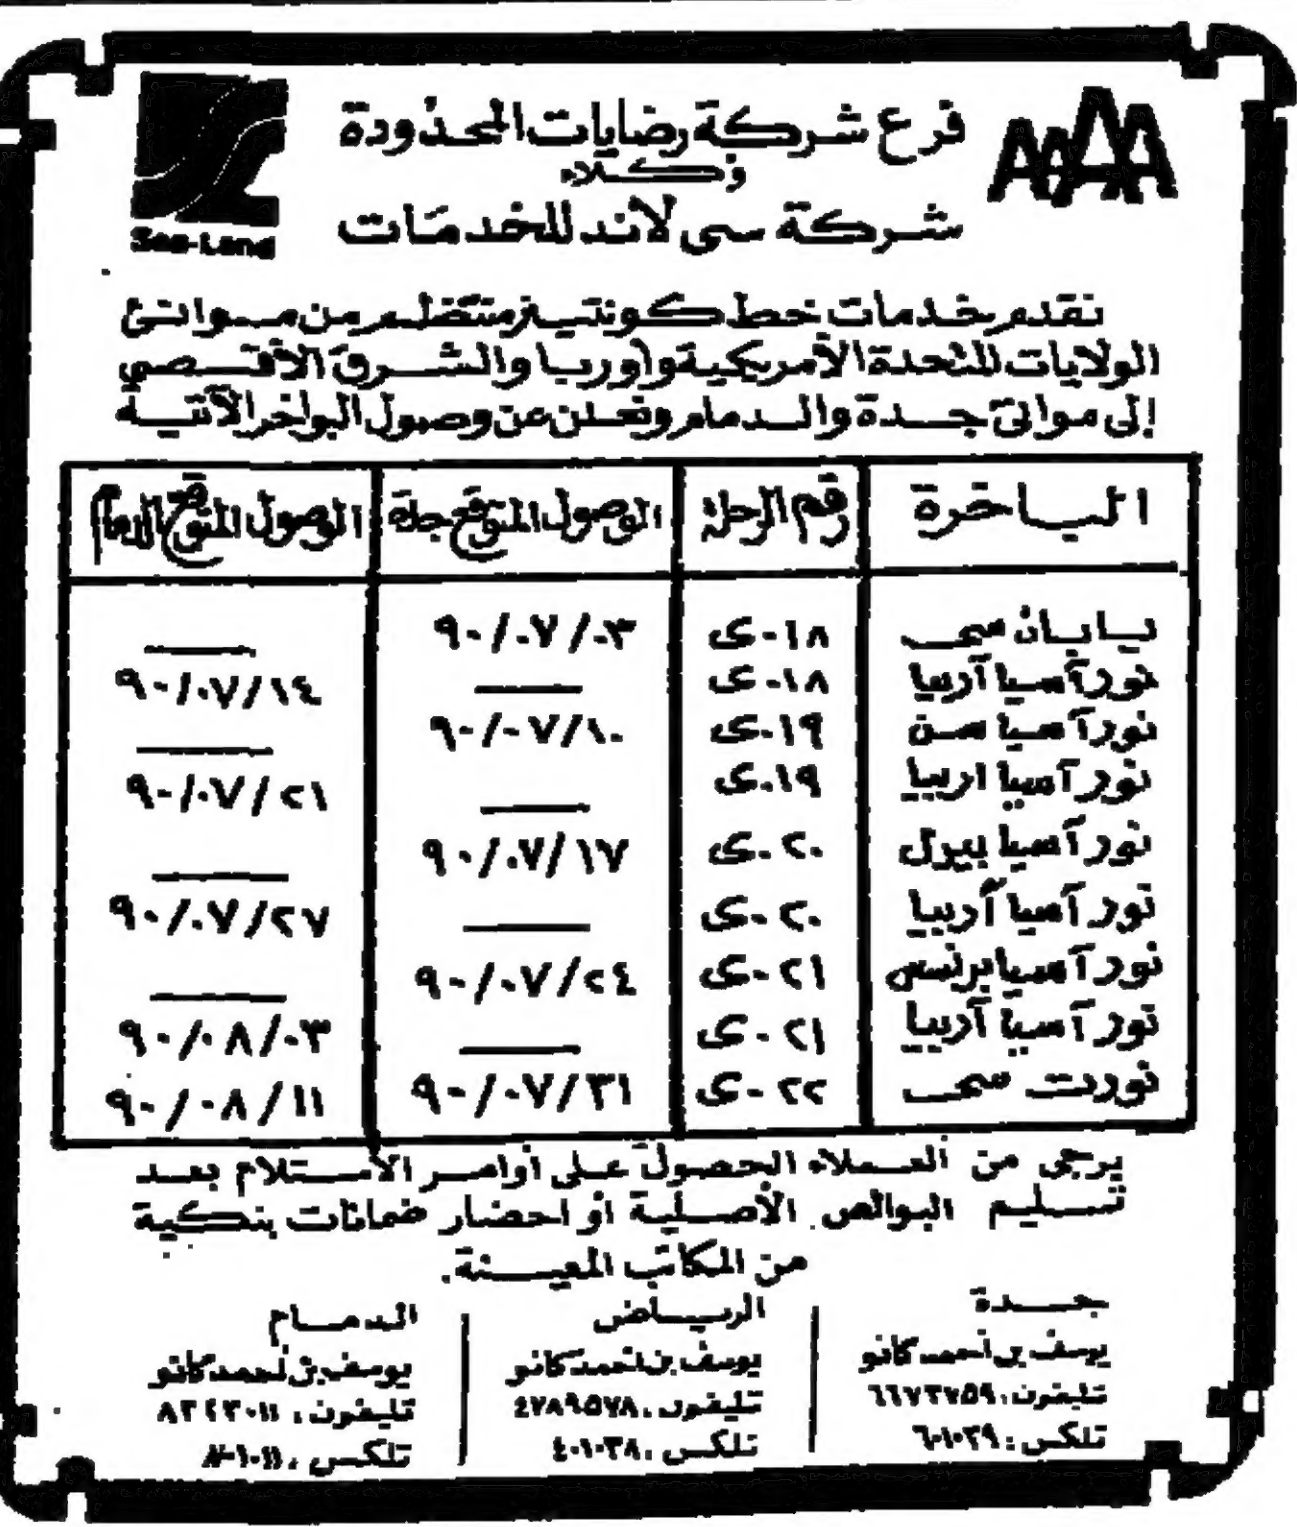 فرع شركة رضايات المحدودة
وكلاء
شركة سي لاند للخدمات
Sea-Land
نقدم خدمات خط كونتينر منتظم من موانئ
الولايات المتحدة الأمريكية وأوربا والشرق الأقصى
إلى موانئ جدة والدمام ونعلن عن وصول البواخر الآتية
الباخرة | رقم الرحلة | الوصول المتوقع جدة | الوصول المتوقع الدمام
يابان سي | ٠١٨ي | ٩٠/٠٧/٠٣ | ___
نورآسيا آربيا | ٠١٨ي | ___ | ٩٠/٠٧/١٤
نورآسيا سن | ٠١٩ي | ٩٠/٠٧/١٠ | ___
نورآسيا اربيا | ٠١٩ي | ___ | ٩٠/٠٧/٢١
نورآسيا بيرل | ٠٢٠ي | ٩٠/٠٧/١٧ | ___
نورآسيا آربيا | ٠٢٠ي | ___ | ٩٠/٠٧/٢٧
نورآسيا برنسس | ٠٢١ي | ٩٠/٠٧/٢٤ | ___
نورآسيا آربيا | ٠٢١ي | ___ | ٩٠/٠٨/٠٣
نورت سي | ٠٢٢ي | ٩٠/٠٧/٣١ | ٩٠/٠٨/١١
يرجى من العملاء الحصول على أوامر الأستلام بعد
تسليم البوالص الأصلية أو احضار ضمانات بنكية
من المكاتب المعينة.
جدة
يوسف بن أحمد كانو
تليفون: ٦٦٧٣٧٥٩
تلكس: ٦٠١٠٣٩
الرياض
يوسف بن أحمد كانو
تليفون: ٤٧٨٩٥٧٨
تلكس: ٤٠١٠٣٨
الدمام
يوسف بن أحمد كانو
تليفون: ٨٣٢٣٠١١
تلكس: